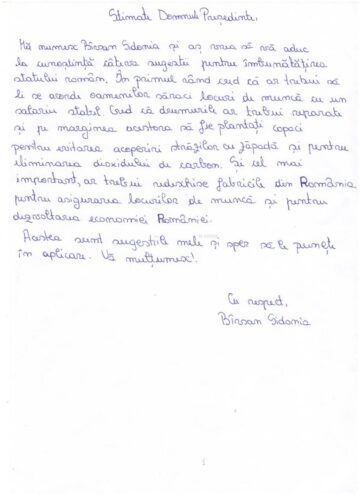 Stimate Domnul Președinte,
Mă numesc Bîrsan Sidonia și aș vrea să vă aduc
la cunoștință câteva sugestii pentru îmbunătățirea
statului român. În primul rând cred că ar trebui să
li se acorde oamenilor săraci locuri de muncă cu un
salariu stabil. Cred că drumurile ar trebui reparate
și pe marginea acestora să fie plantați copaci
pentru evitarea acoperiri străzilor cu zăpadă și pentru
eliminarea dioxidului de carbon. Și cel mai
important, ar trebui redeschise fabricile din România
pentru asigurarea locurilor de muncă și pentru
dezvoltarea economiei României.
Acestea sunt sugestiile mele și sper să le puneți
în aplicare. Vă mulțumesc!
Cu respect,
Bîrsan Sidonia